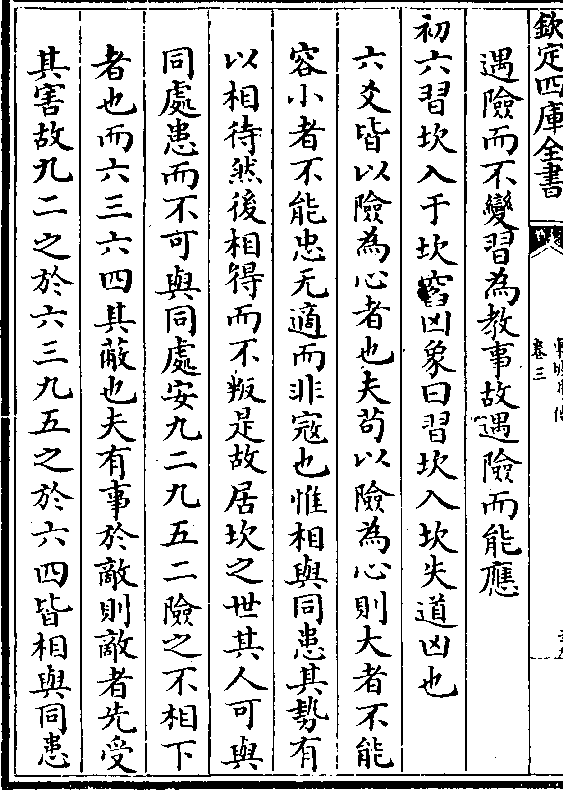 欽定四庫全書
卷三
遇險而不變習為教事故遇險而能應
初六習坎入于坎窞凶象曰習坎入坎失道凶也
六爻皆以險為心者也夫苟以險為心則大者不能
容小者不能忠无適而非寇也惟相與同患其勢有
以相待然後相得而不叛是故居坎之世其人可與
同處患而不可與同處安九二九五二險之不相下
者也而六三六四其蔽也夫有事於敵則敵者先受
其害故九二之於六三九五之於六四皆相與同患